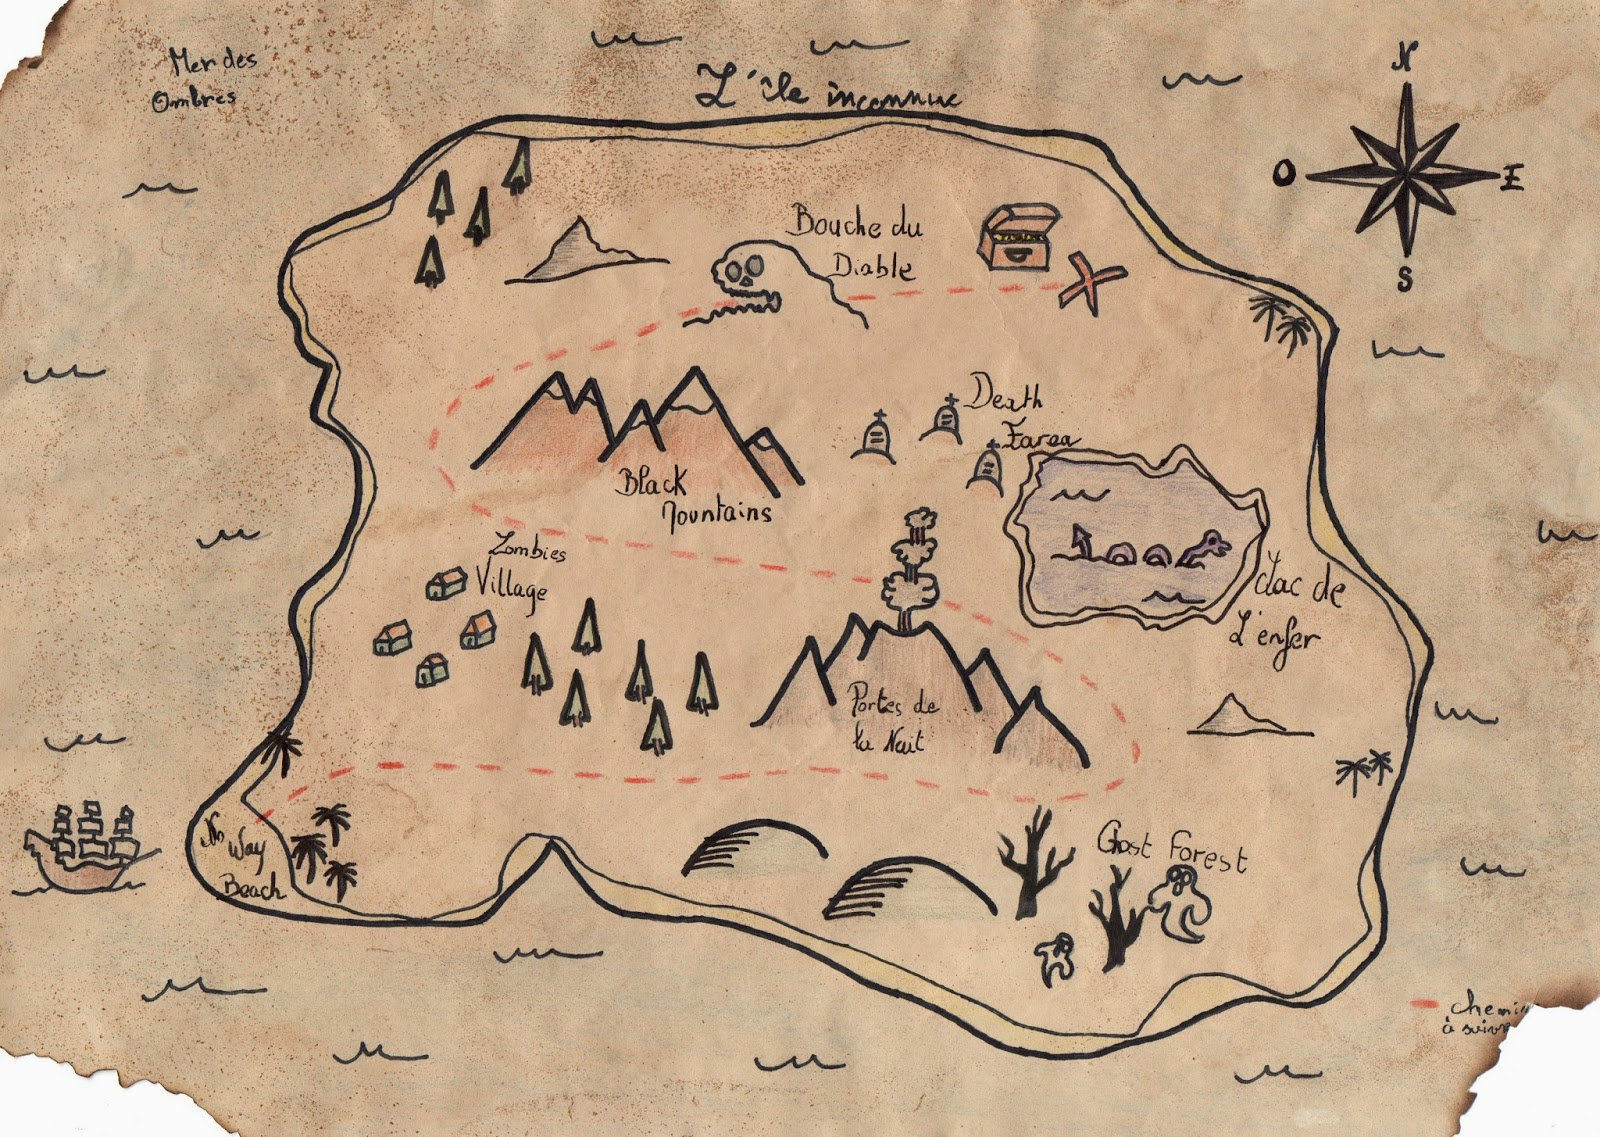 Mer des
Ombres
L'île inconnue
N
O
E
S
Bouche du
Diable
Death
Earea
Black
Mountains
Zombies
Village
Lac de
L'enfer
Portes de
la Nuit
No
Way
Beach
Ghost Forest
Chemin
à suivre